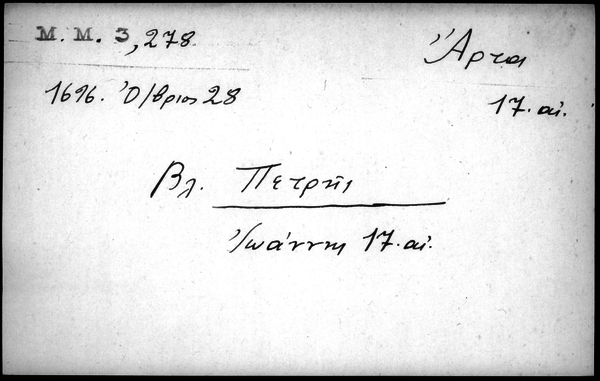 M. M. 3, 278 Ἄρτα
1696. Ὀ/βριος 28 17. αἰ.
Βλ. Πετρῆς
Ἰωάννης 17. αἰ.